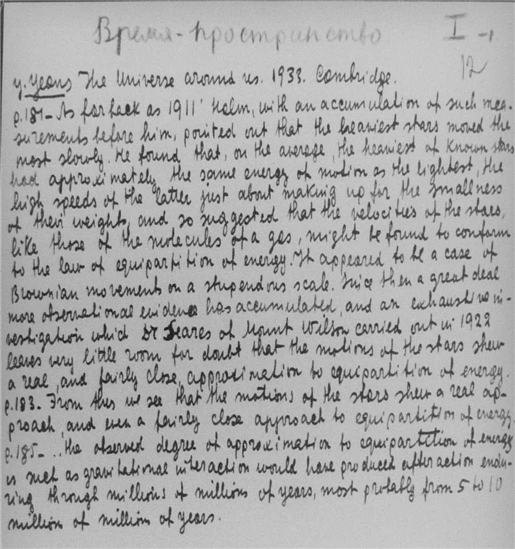 Время-пространство I-1
12
y. Jeans The Universe around us. 1933. Cambridge.
p.181- As far back as 1911' Halm, with an accumulation of such mea-
surements before him, pointed out that the heaviest stars moved the
most slowly. He found that, on the average, the heaviest of known stars
had approximately the same energy of motion as the lightest, the
high speeds of the latter just about making up for the smallness
of their weights, and so suggested that the velocities of the stars,
like those of the molecules of a gas, might be found to conform
to the law of equipartition of energy. It appeared to be a case of
Brownian movement on a stupendous scale. Since then a great deal
more observational evidence has accumulated, and an exhaustive in-
vestigation which Dr Seares of Mount Wilson carried out in 1922
leaves very little room for doubt that the motions of the stars shew
a real, and fairly close, approximation to equipartition of energy.
p.183. From this we see that the motions of the stars shew a real ap-
proach, and even a fairly close approach to equipartition of energy.
p.185- .. the observed degree of approximation to equipartition of energy
is such as gravitational interaction would have produced after action endu-
ring through millions of millions of years, most probably from 5 to 10
million of millions of years.